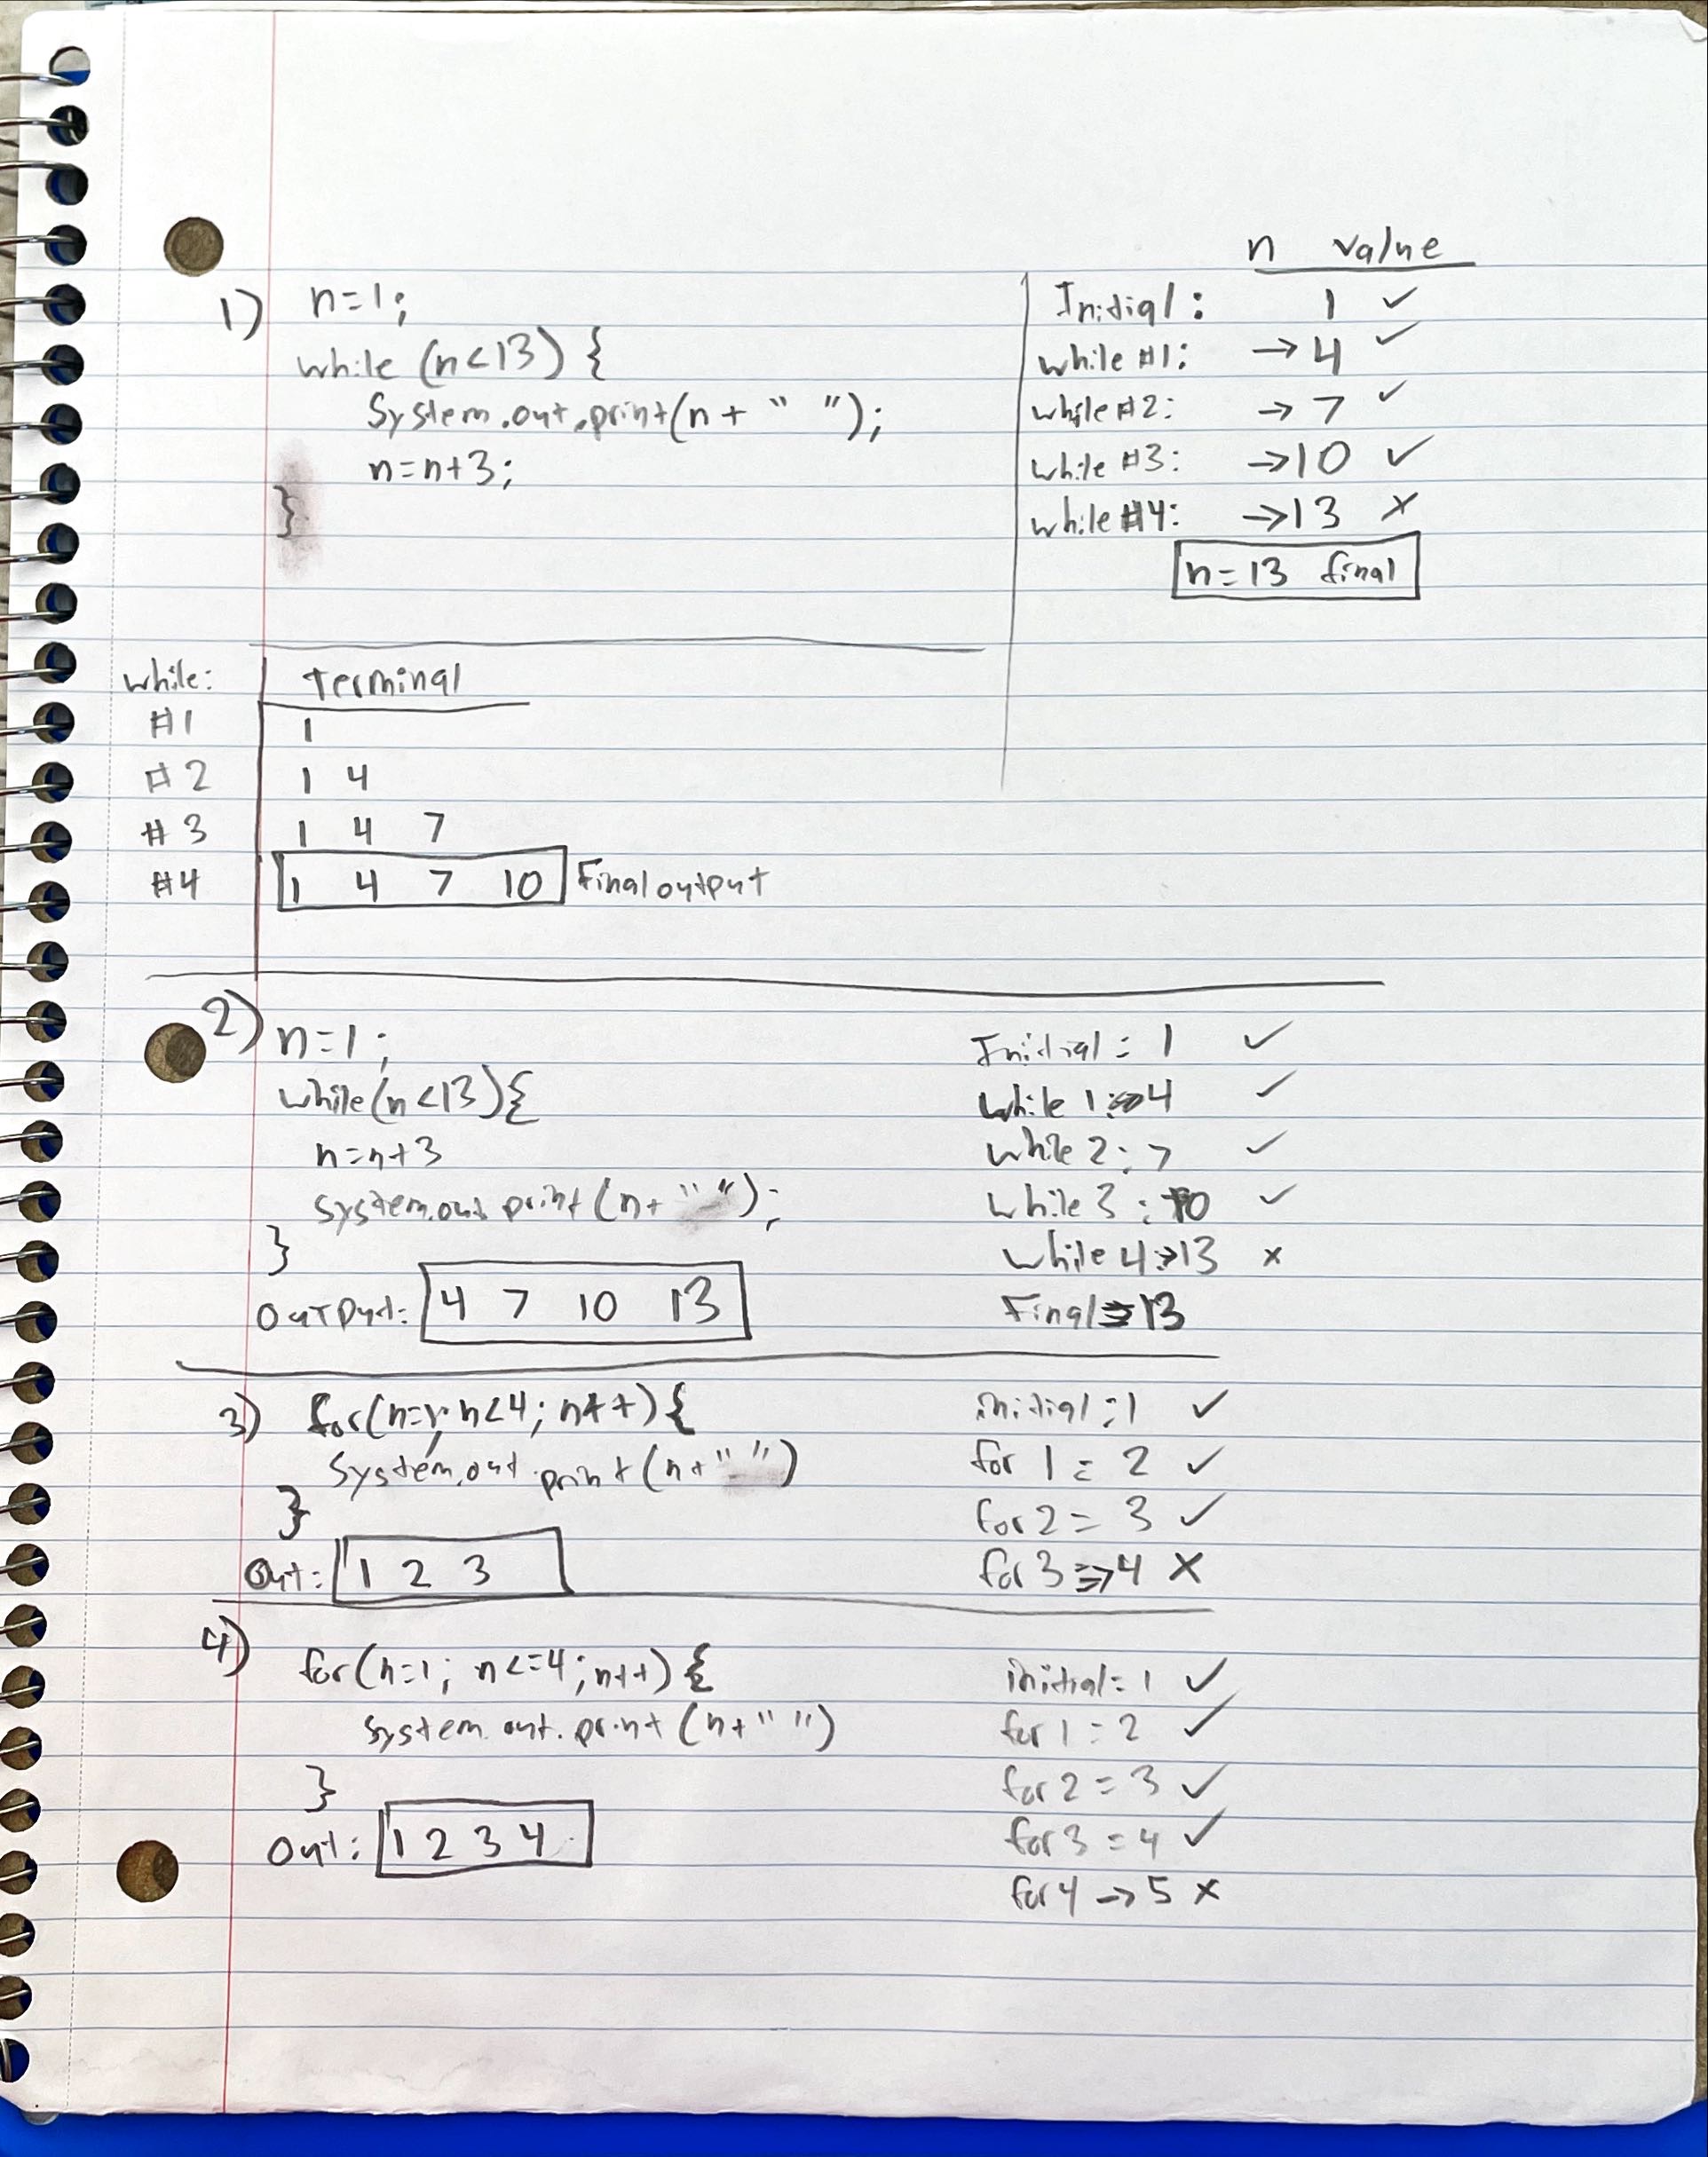 1) n=1;
while (n<13) {
System.out.print(n + " ");
n=n+3;
}
n value
Initial: 1 ✓
while #1: → 4 ✓
while #2: → 7 ✓
while #3: → 10 ✓
while #4: → 13 x
n=13 final
while: terminal
#1 1
#2 1 4
#3 1 4 7
#4 1 4 7 10 Final output
2) n=1;
while(n<13){
n=n+3
system.out print(n+" ");
}
Output: 4 7 10 13
Initial = 1 ✓
while 1: → 4 ✓
while 2: 7 ✓
while 3: 10 ✓
while 4: → 13 x
Final → 13
3) for(n=1; n<4; n++){
System.out.print(n+" ")
}
Out: 1 2 3
initial: 1 ✓
for 1 = 2 ✓
for 2 = 3 ✓
for 3 → 4 X
4) for(n=1; n<=4; n++) {
system.out.print(n+" ")
}
Out: 1 2 3 4
initial = 1 ✓
for 1 = 2 ✓
for 2 = 3 ✓
for 3 = 4 ✓
for 4 → 5 x